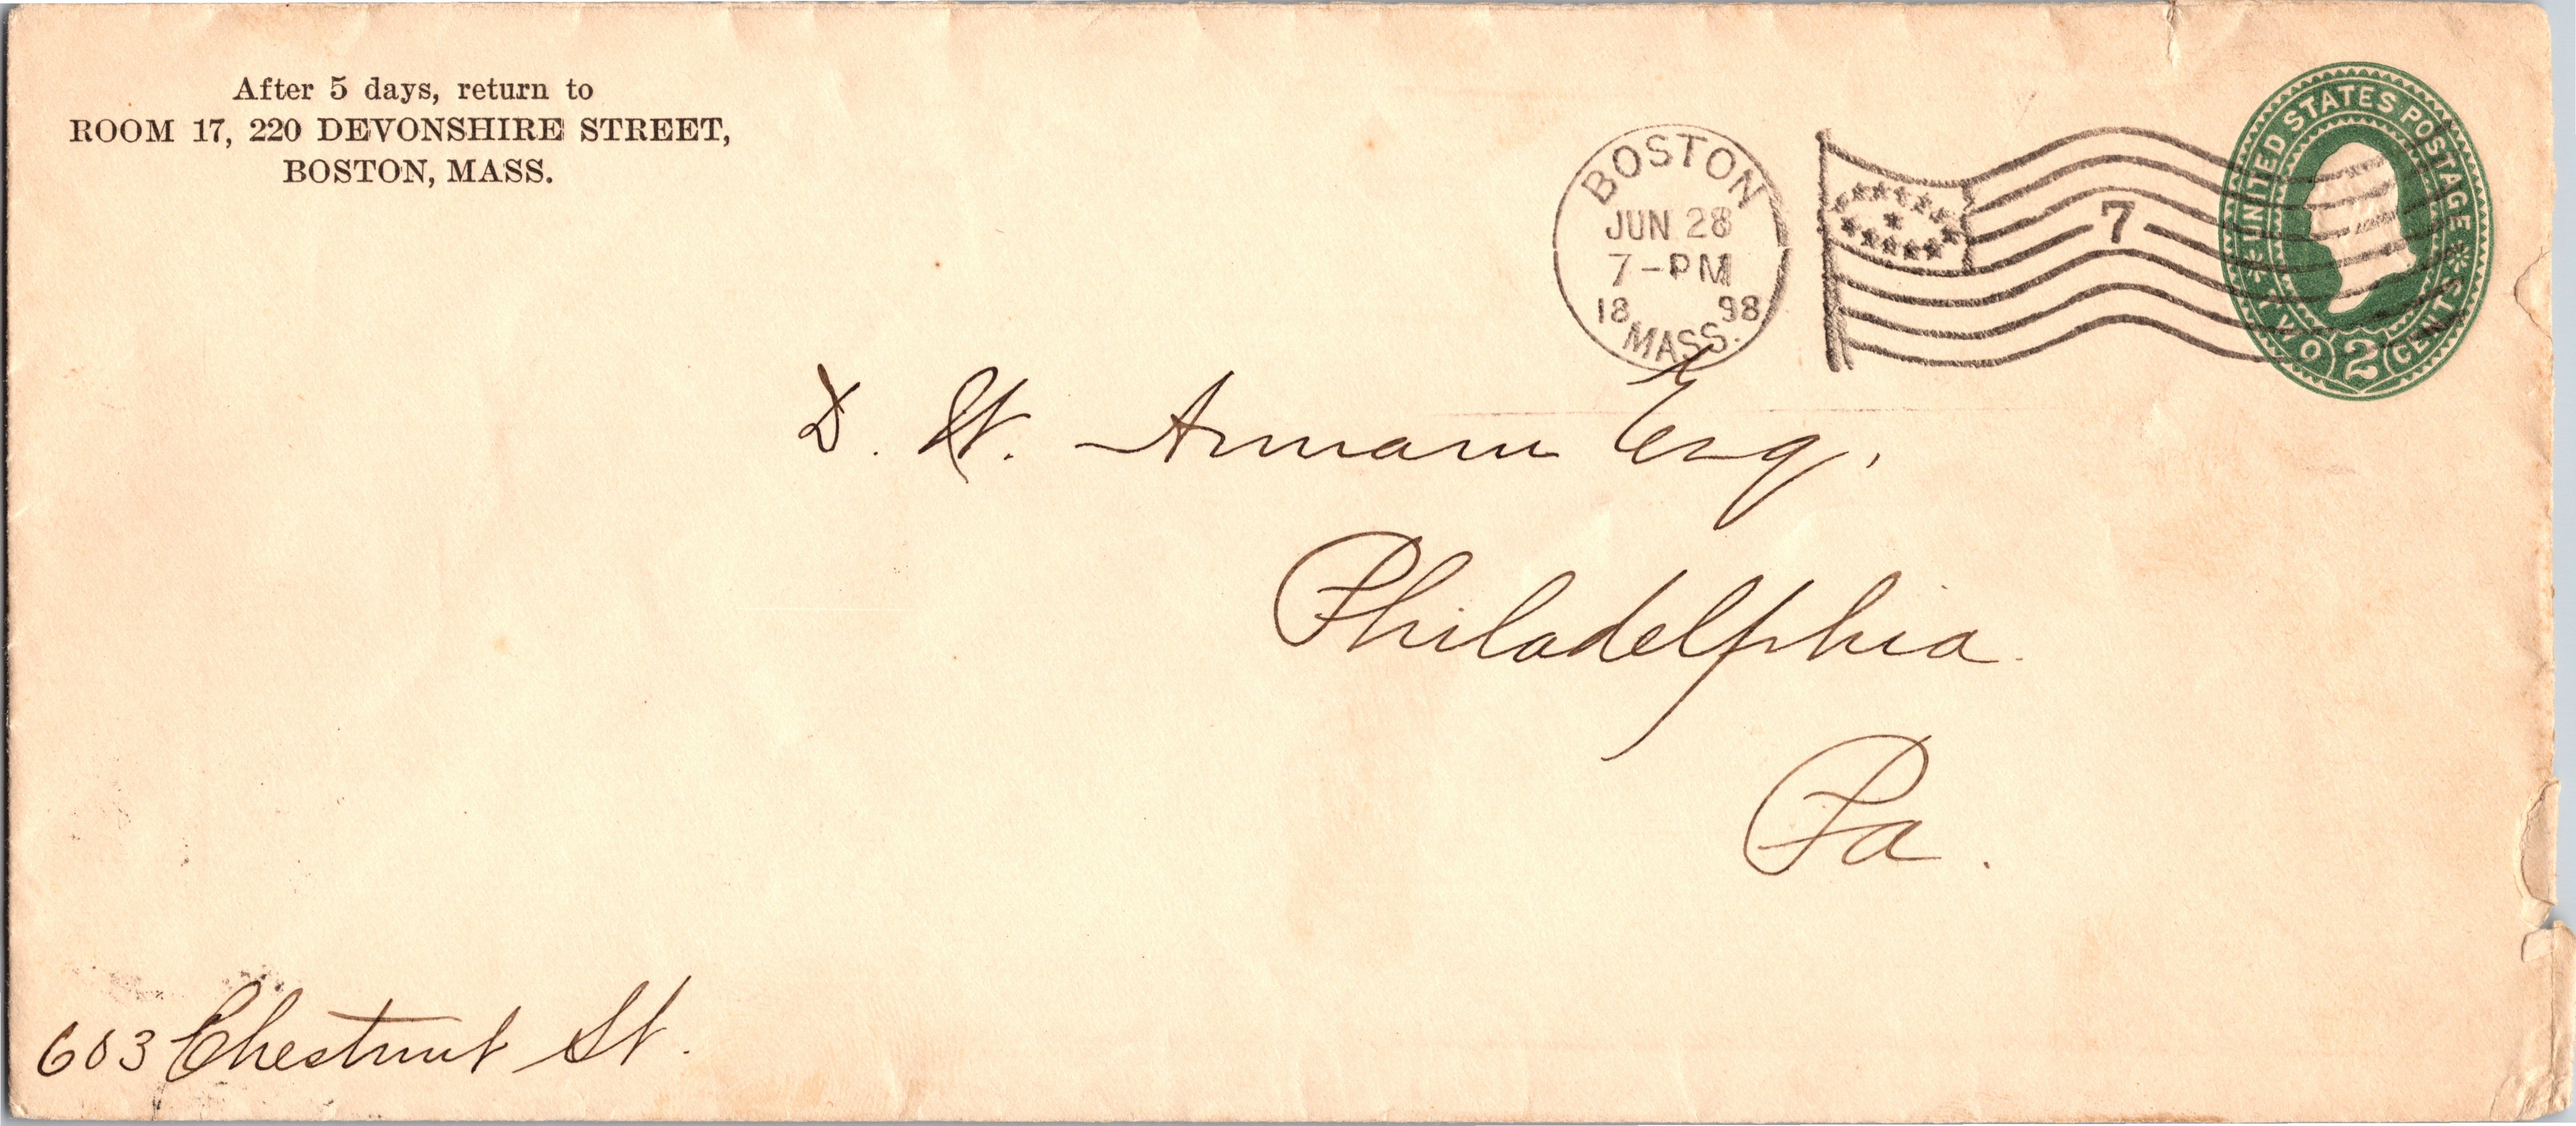 After 5 days, return to
ROOM 17, 220 DEVONSHIRE STREET,
BOSTON, MASS.
BOSTON
JUN 28
7-PM
18 98
MASS.
7
UNITED STATES POSTAGE
TWO 2 CENTS
D. W. Esq.
Philadelphia
Pa.
603 Chestnut St.